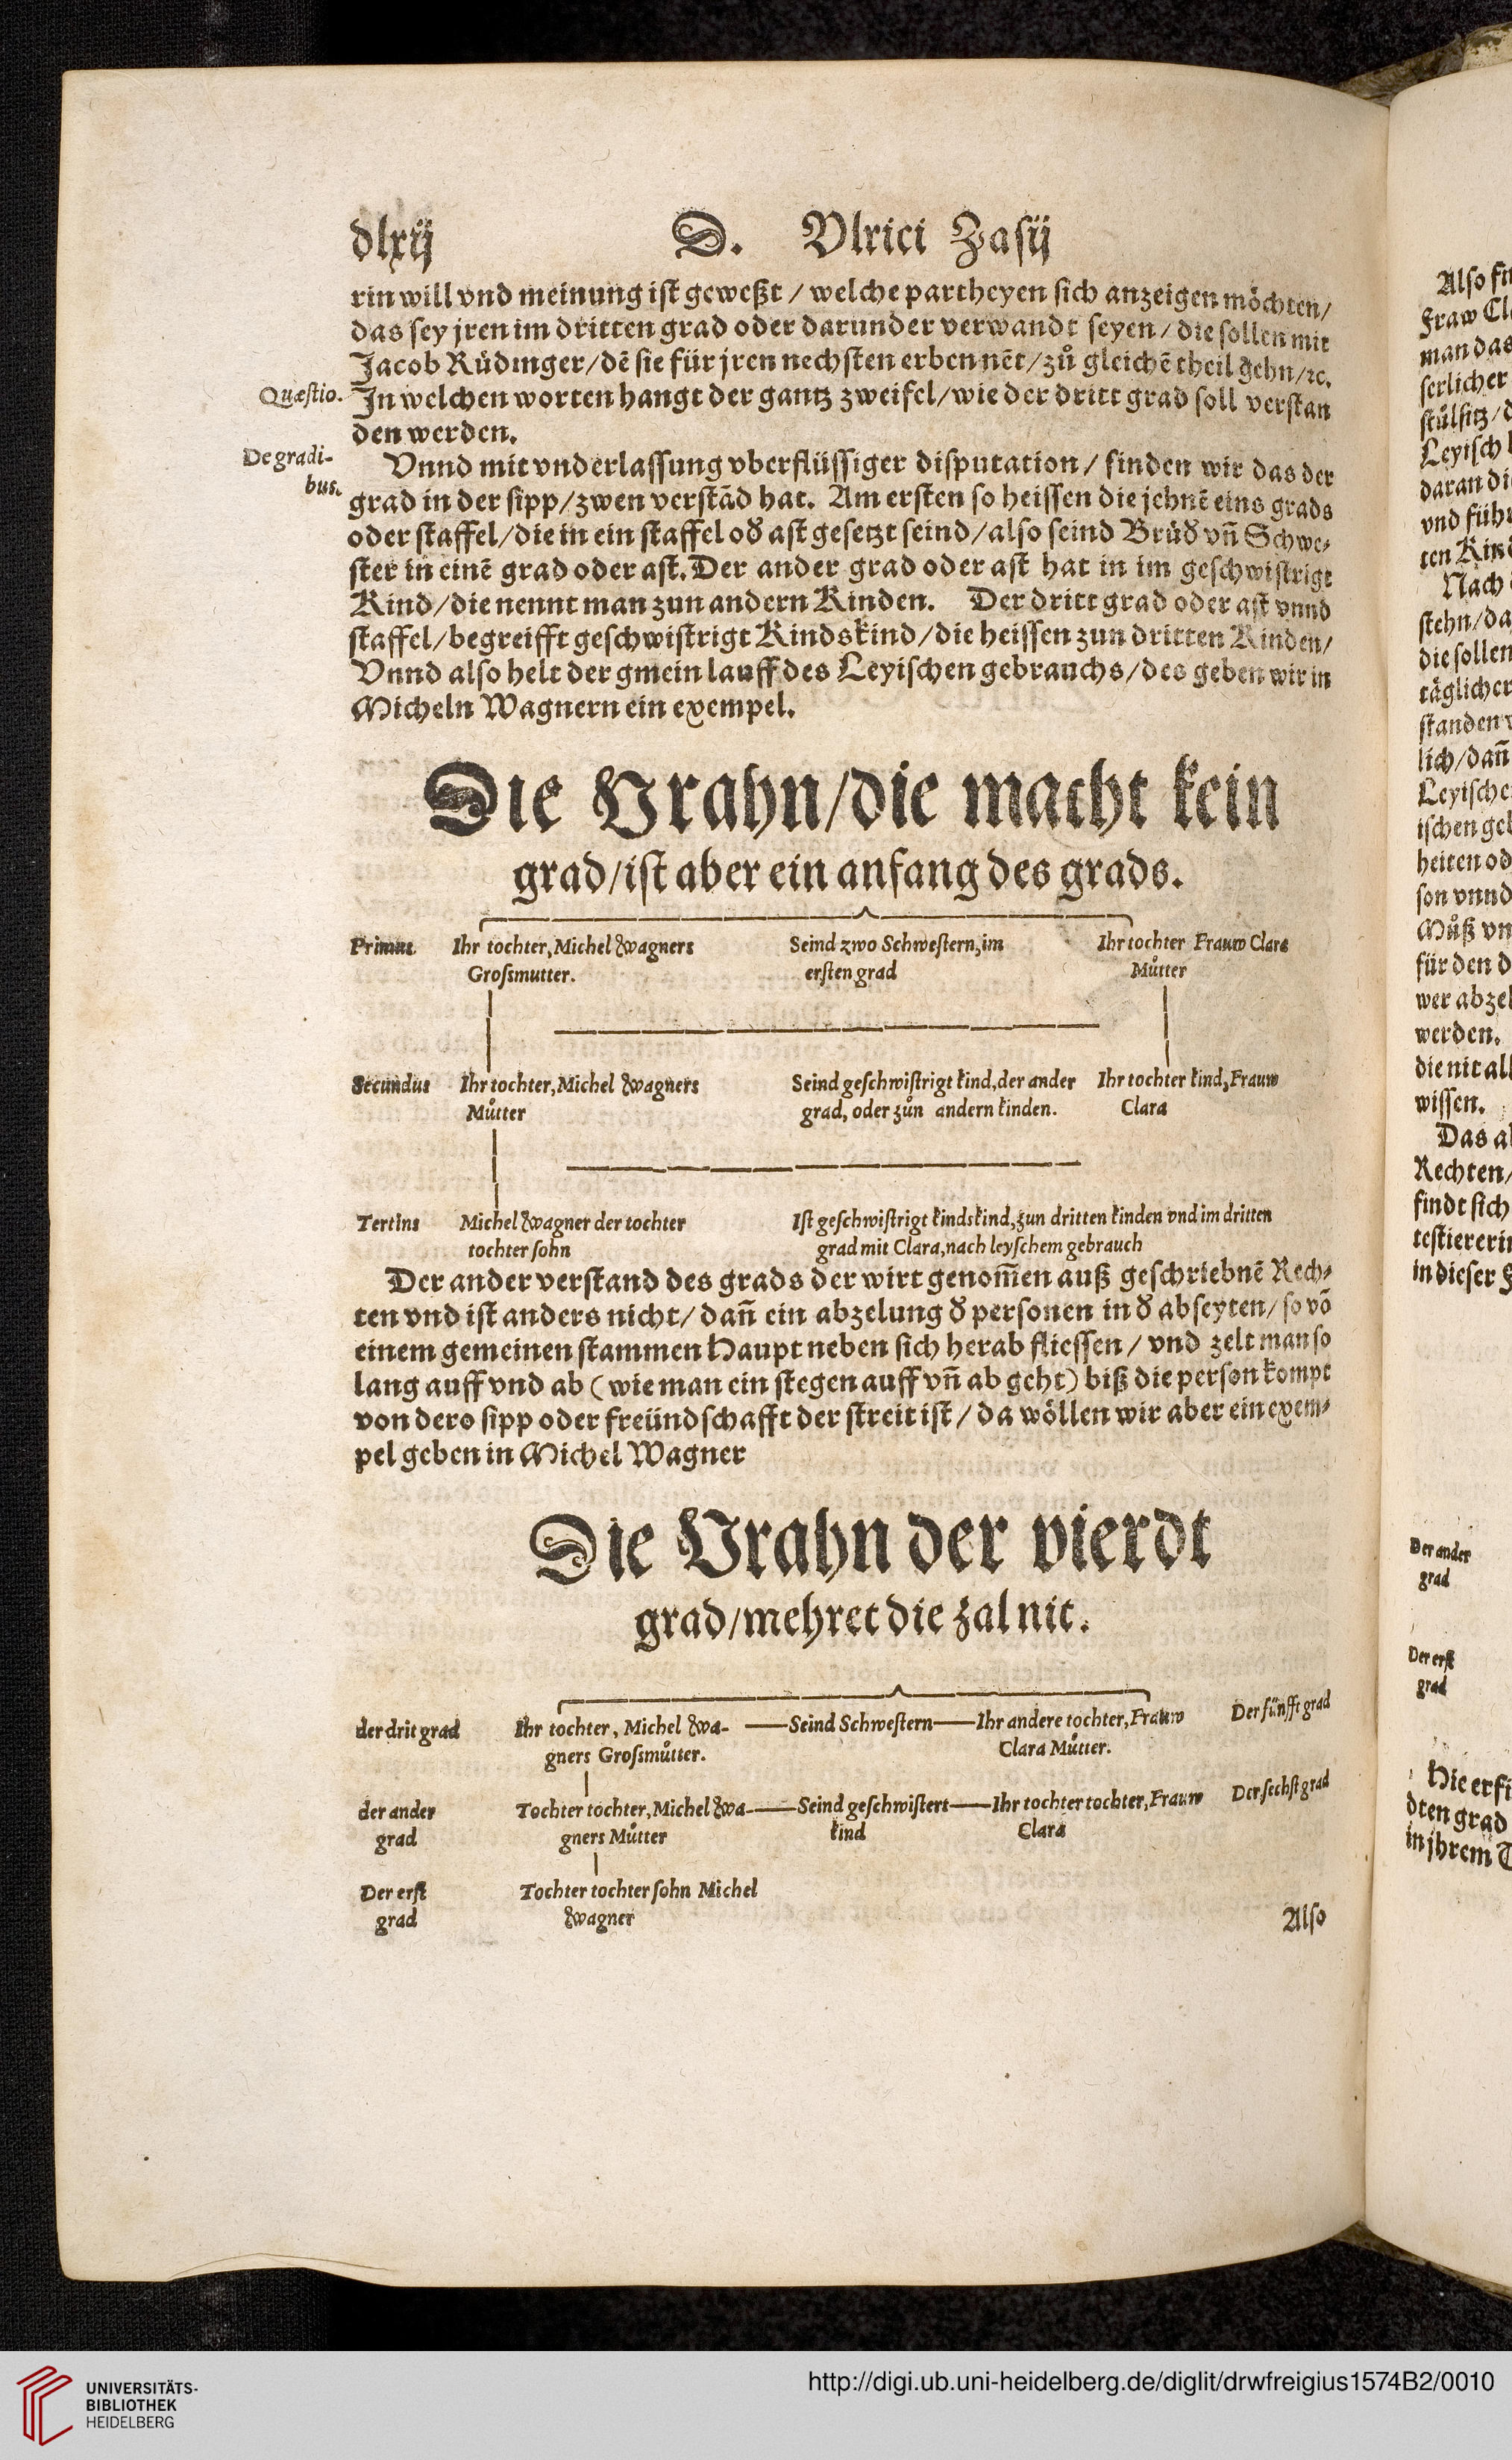 dlxij D. Vlrici Zasij
rin will vnd meinung ist geweßt / welche partheyen sich anzeigen möchten /
das sey jren im dritten grad oder darunder verwandt seyen / die sollen mit
Jacob Rüdinger / dē sie für jren nechsten erben nēt / zů gleichē theil gehn / ꝛc.
Quæstio. In welchen worten hangt der gantz zweifel / wie der dritt grad soll verstan
den werden.
De gradi-
bus.
Vnnd mit vnderlassung vberflüssiger disputation / finden wir das der
grad in der sipp / zwen verstād hat. Am ersten so heissen die jehnē eins grads
oder staffel / die in ein staffel oď ast gesetzt seind / also seind Brüď vñ Schwe⸗
ster in einē grad oder ast. Der ander grad oder ast hat in im geschwistrigt
Kind / die nennt man zun andern Kinden. Der dritt grad oder ast vnnd
staffel / begreifft geschwistrigt Kindskind / die heissen zun dritten Kinden /
Vnnd also helt der gmein lauff des Leyischen gebrauchs / des geben wir in
Micheln Wagnern ein exempel.
Die Vrahn / die macht kein
grad / ist aber ein anfang des grads.
Primus Ihr tochter, Michel Wagners Seind zwo Schwestern, im Ihr tochter Frauw Clara
Grossmutter. ersten grad Můtter
Secundus Ihr tochter, Michel Wagners Seind geschwistrigt kind, der ander Ihr tochter kind, Frauw
Můtter grad, oder zůn andern kinden. Clara
Tertius Michel Wagner der tochter Ist geschwistrigt kindskind, zun dritten kinden vnd im dritten
tochter sohn grad mit Clara, nach leyschem gebrauch
Der ander verstand des grads der wirt genom̄en auß geschriebnē Rech⸗
ten vnd ist anders nicht / dañ ein abzelung ď personen in ď abseyten / so vō
einem gemeinen stammen Haupt neben sich herab fliessen / vnd zelt man so
lang auff vnd ab ( wie man ein stegen auff vñ ab geht ) biß die person kompt
von dero sipp oder freündschafft der streit ist / da wöllen wir aber ein exem⸗
pel geben in Michel Wagner
Die Vrahn der vierdt
grad / mehret die zal nit.
der drit grad Ihr tochter, Michel Wa- Seind Schwestern Ihr andere tochter, Frauw Der fünfft grad
gners Grossmůtter. Clara Můtter.
der ander Tochter tochter, Michel Wa- Seind geschwistert Ihr tochter tochter, Frauw Der sechst grad
grad gners Můtter kind Clara
Der erst Tochter tochter sohn Michel
grad Wagner
Also
Also
Fraw
man das
serlicher
stülsitz /
Leyisch
daran
vnd
ten
Nach
stehn / da
die sollen
täglicher
standen
lich / dañ
Leyische
ischen
heiten
son vnnd
Můß
für den
wer
werden.
die nit
wissen.
Das
Rechten /
findt sich
in dieser
Der ander
grad
Der erst
grad
Hie
dten grad
in jhrem
UNIVERSITÄTS-
BIBLIOTHEK
HEIDELBERG
http://digi.ub.uni-heidelberg.de/diglit/drwfreigius1574B2/0010